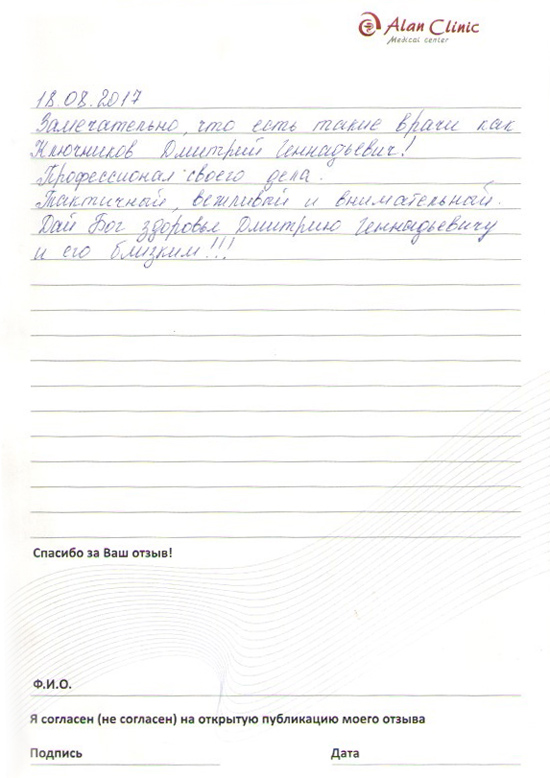 Alan Clinic
Medical center
18.08.2017
Замечательно, что есть такие врачи как
Ключников Дмитрий Геннадьевич!
Профессионал своего дела.
Тактичный, вежливый и внимательный.
Дай Бог здоровья Дмитрию Геннадьевичу
и его близким!!!
Спасибо за Ваш отзыв!
Ф.И.О.
Я согласен (не согласен) на открытую публикацию моего отзыва
Подпись Дата